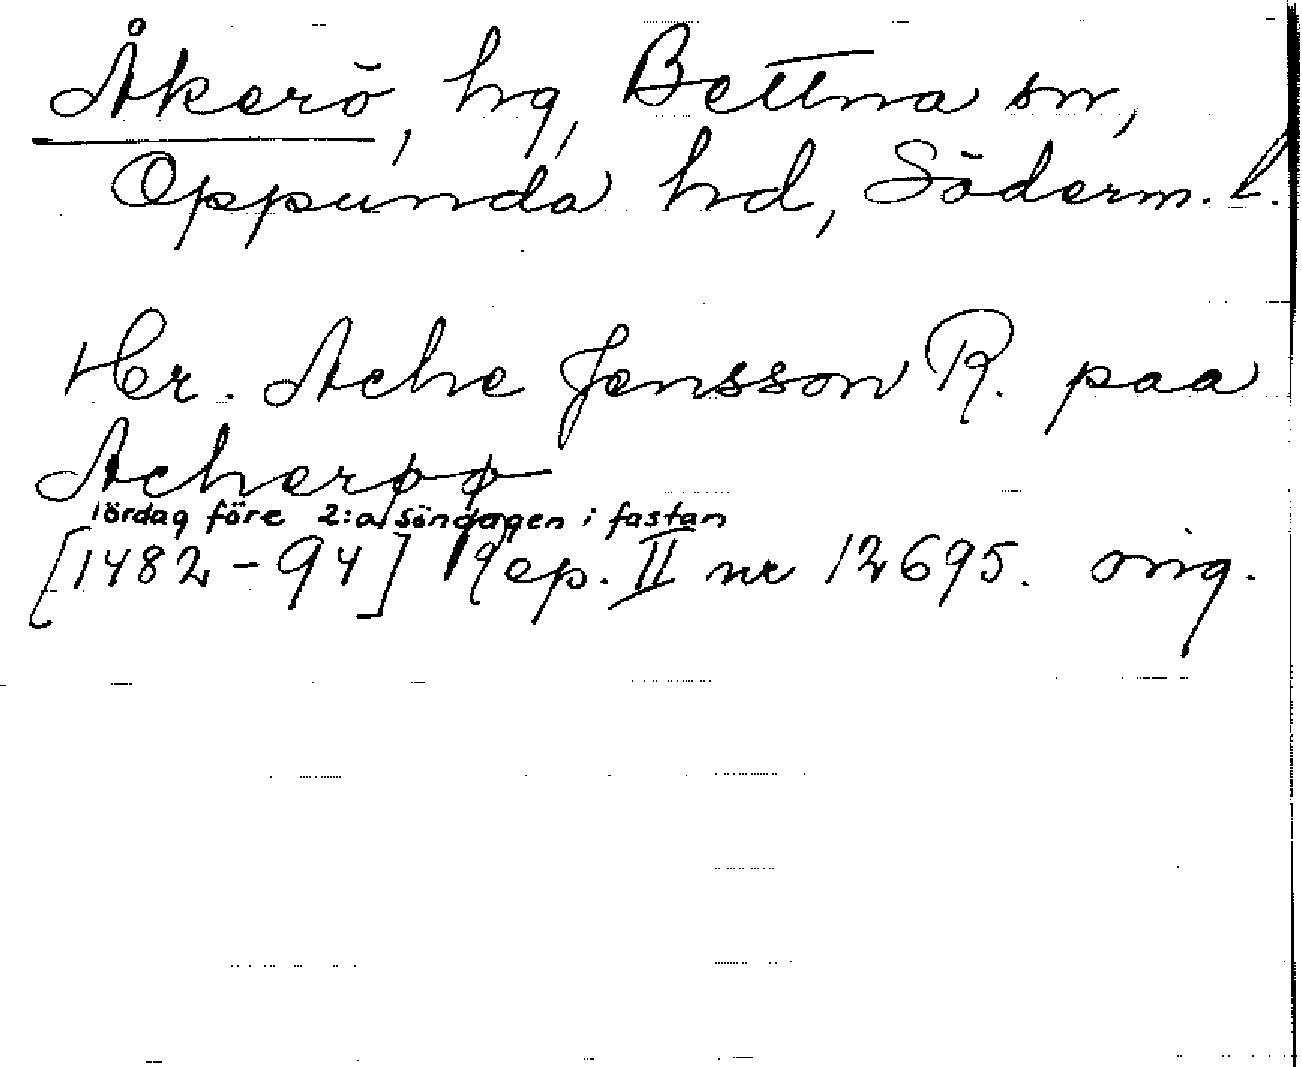 Åkerö, hg, Bettna sn,
Oppunda hd, Söderm. l.
Her. Ache Jensson R. paa
Acherøø
lördag före 2:a söndagen i fastan
[1482-94] Rep. II nr 12695. orig.